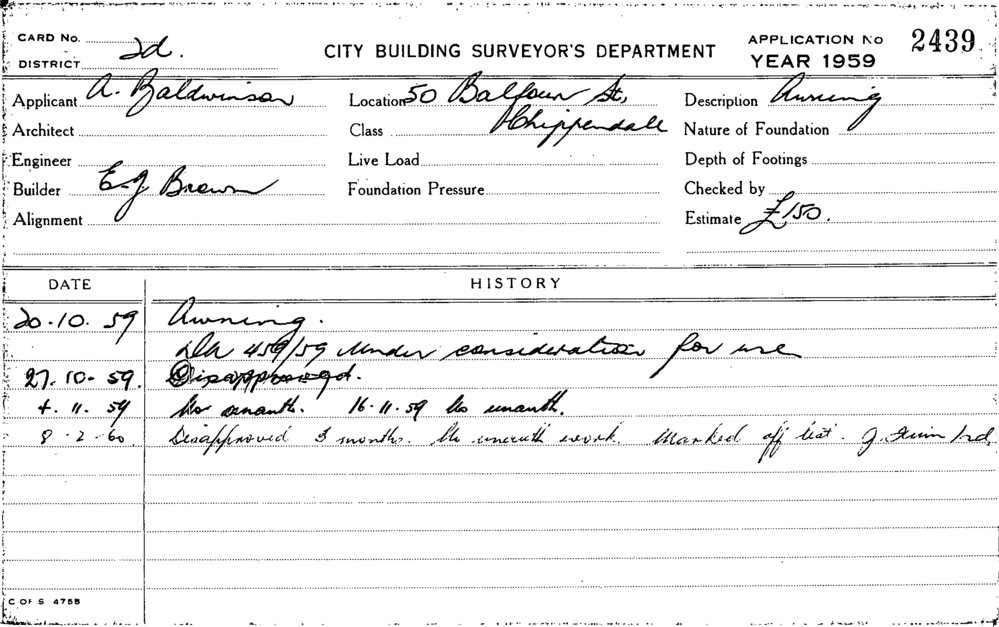 CARD No.
DISTRICT 2d.
CITY BUILDING SURVEYOR'S DEPARTMENT
APPLICATION No 2439
YEAR 1959
Applicant A. Baldwinson
Location 50 Balfour St,
Description Awning
Architect
Class Chippendale
Nature of Foundation
Engineer
Live Load
Depth of Footings
Builder E J Brown
Foundation Pressure
Checked by
Alignment
Estimate £150.
DATE HISTORY
20.10.59 Awning.
DA 459/59 Under consideration for use
27.10.59. Disapproved.
4.11.59 No unauth. 16.11.59 No unauth.
8.2.60 Disapproved 3 months. No unauth work. Marked off list. J.
C OF S 4755